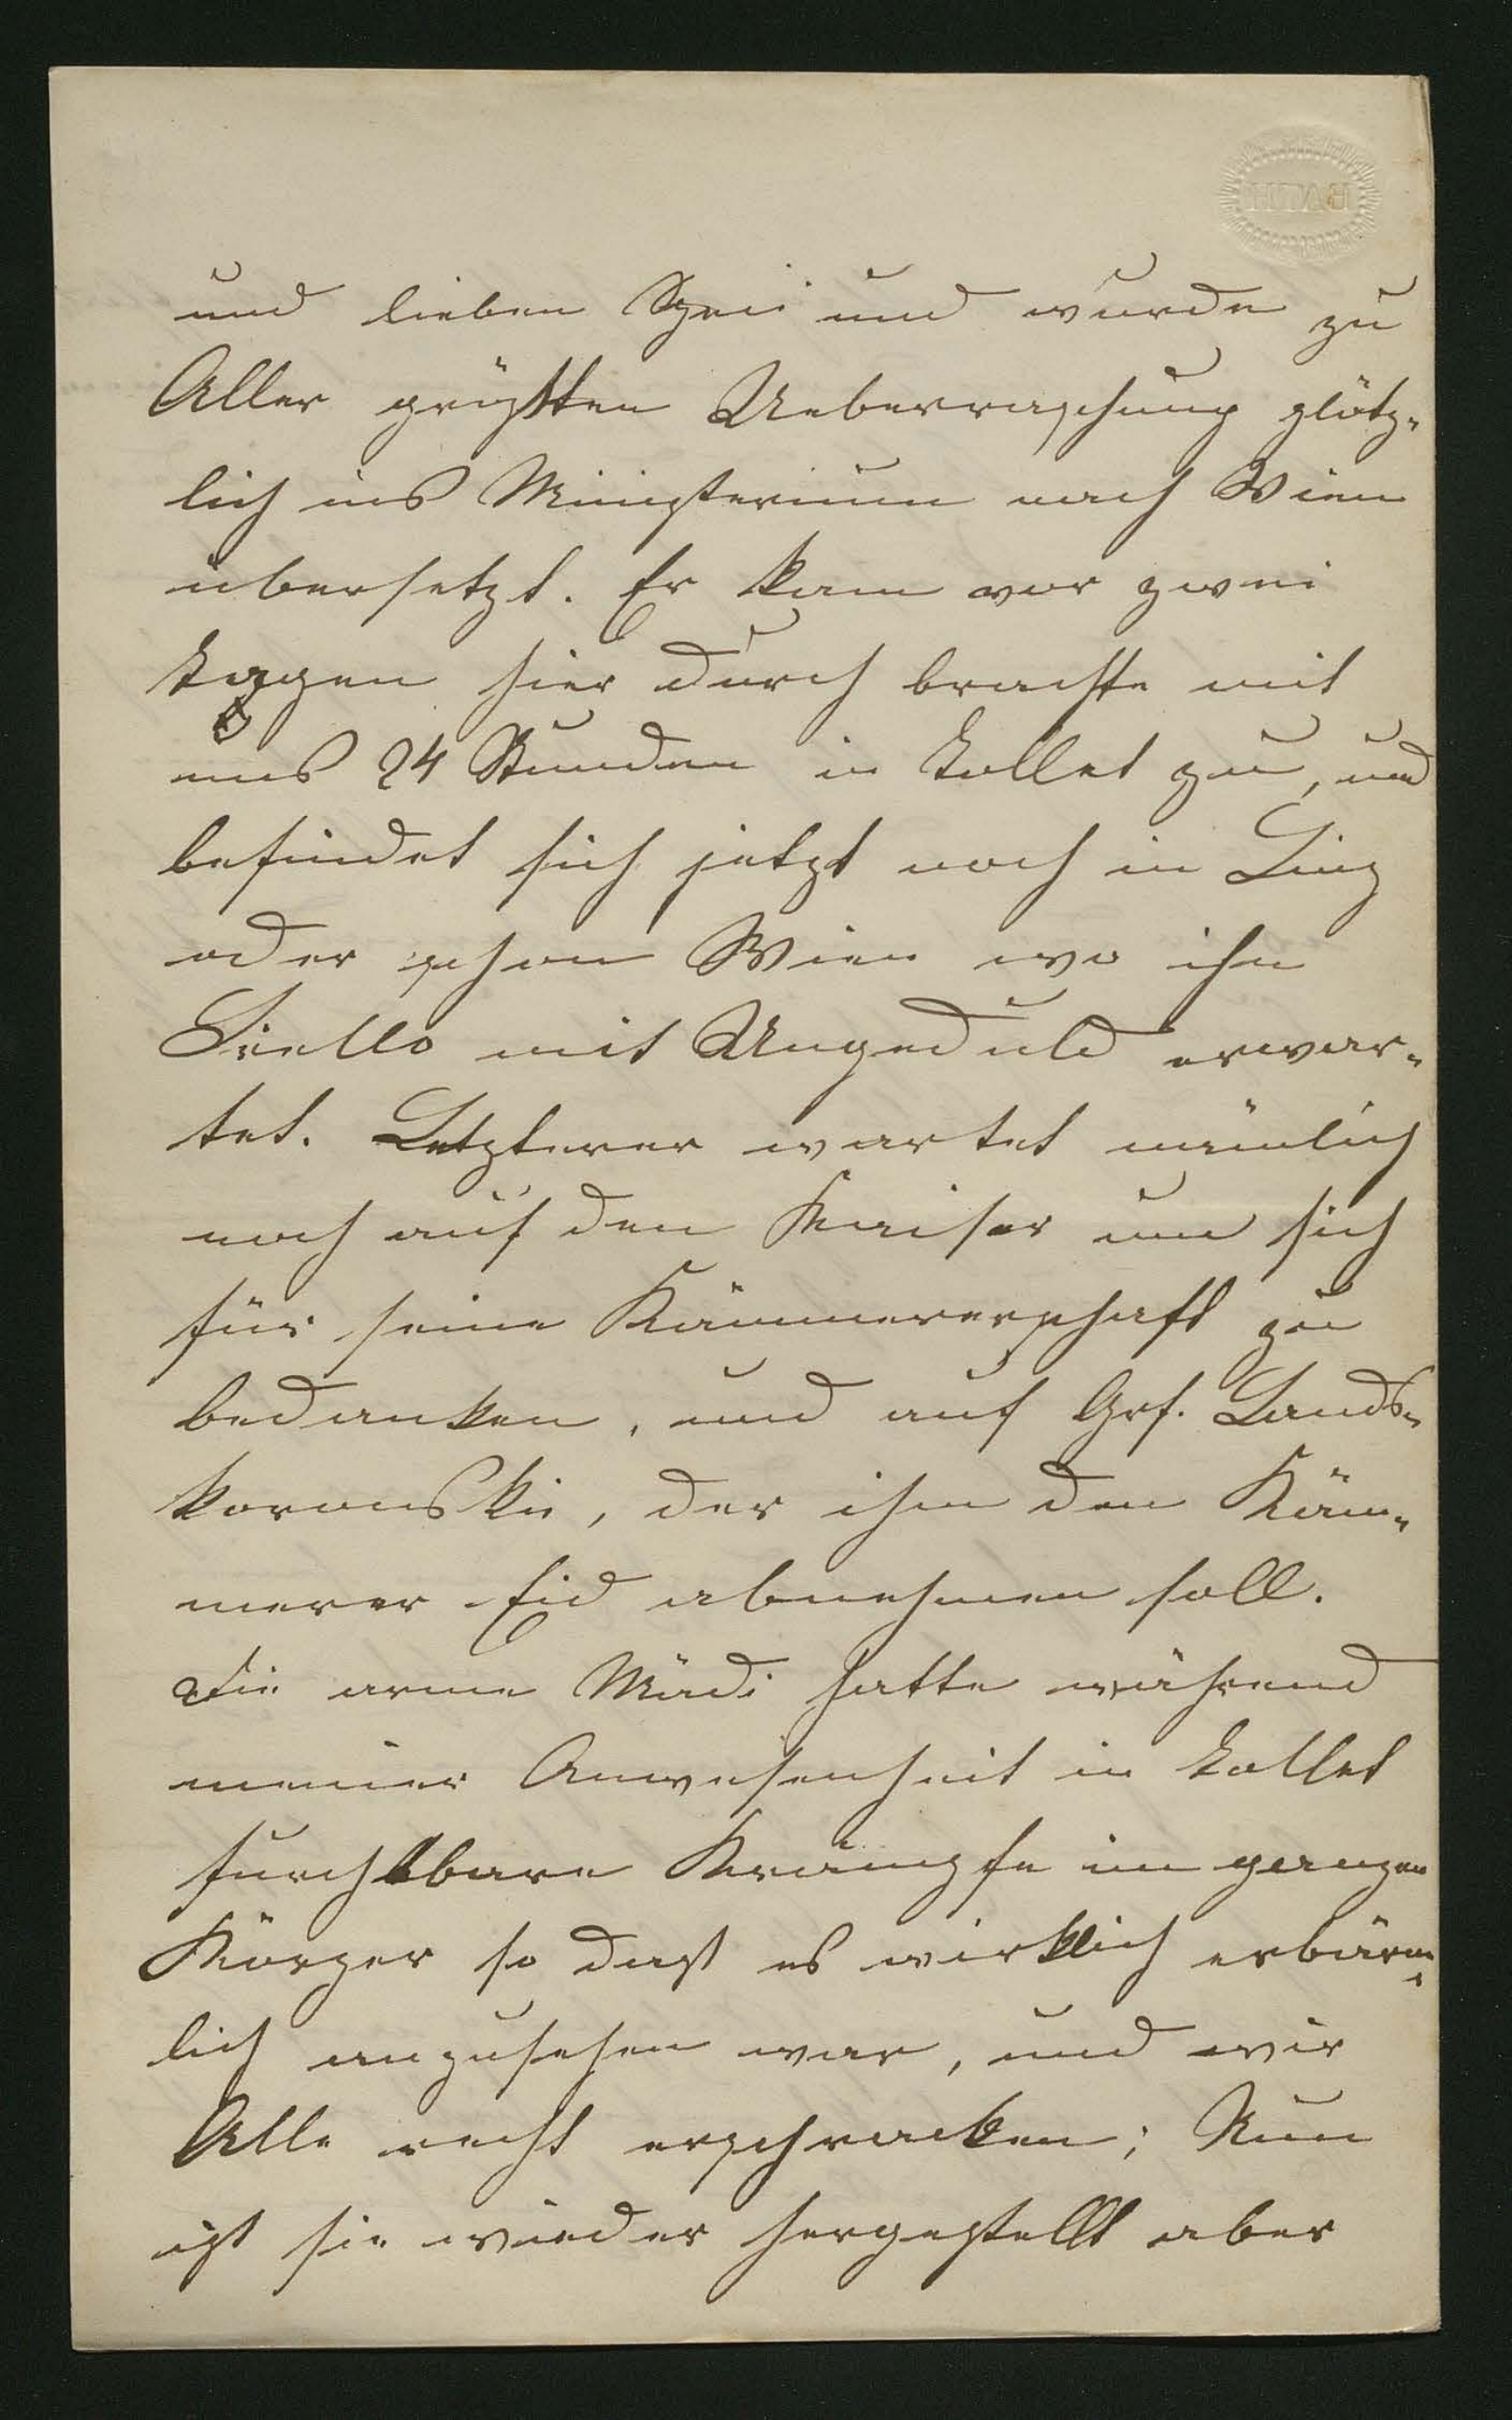 BATH
und lieben und wurde zu
Aller größten Ueberraschung plötz-
lich ins Ministerium nach Wien
übersetzt. Er kam vor zwei
Tagen hier durch brachte mit
uns 24 Stunden in Tollet zu, und
befindet sich jetzt noch in Linz
oder schon Wien wo ihn
mit Ungeduld erwar-
tet. Letzterer wartet nämlich
noch auf den Kaiser um sich
für seine Kämmererschaft zu
bedanken, und auf Grf. Lands-
koronskie, der ihm den Käm-
merer Eid abnehmen soll.
Die arme Mädi hatte während
meiner Anwesenheit in Tollet
furchtbare Krämpfe im ganzen
Körper so dasß es wirklich erbärm-
lich anzusehen war, und wir
Alle recht erschracken; Nun
ist sie wieder hergestellt aber